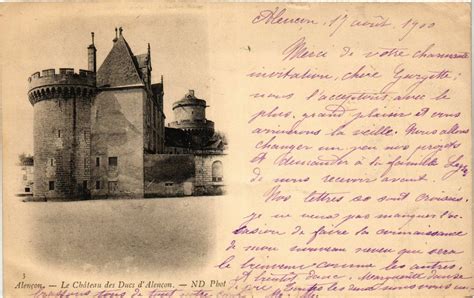 Alençon, 17 août, 1900
Merci de votre charmante
invitation, chère Georgette;
nous l'acceptons avec le
plus grand plaisir et vous
arriverons la veille. Nous allons
changer un peu nos projets
et demander à la famille
de nous recevoir avant.
Nos lettres se sont croisées.
je ne veux pas manquer l'occ
casion de faire la connaissance
de mon nouveau neveu que sera
le bienvenu comme les autres.
A bientôt donc, Marguerite
les
tous de tout notre
5
Alençon. — Le Château des Ducs d'Alençon. — ND Phot